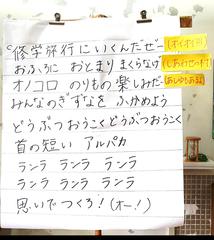 修学旅行にいくんだぜー (オイオイ!!)
おふろに おとまり まくらなげ (しあわせのオ!)
オノコロ のりもの 楽しみだー (あしゆもあるよ)
みんなのきずなを ふかめよう
どうぶつおうこく どうぶつおうこく
首の短い アルパカ
ランラ ランラ ランラ
ランラ ランラ ランラ
思いでつくろ!(オー!)